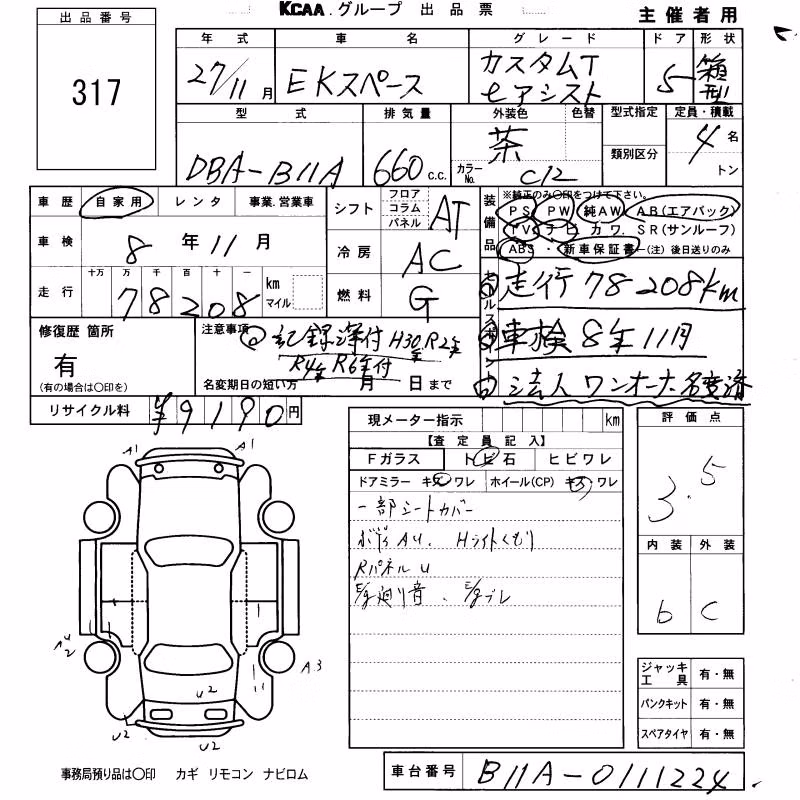 KCAA.グループ 出品票
主催者用
出品番号
317
年式 車名 グレード ドア 形状
27/11月 EKスペース カスタムT eアシスト 5 箱型
型式 排気量 外装色 色替 型式指定 定員・積載
DBA-B11A 660c.c. 茶 4名
カラーNo. C12 類別区分 トン
車歴 自家用 レンタ 事業.営業車
シフト フロア コラム パネル AT
装備品 ※純正のみ○印をつけて下さい。
PS PW 純AW AB(エアバック)
TV ナビ カワ. SR(サンルーフ)
ABS・新車保証書-(注)後日送りのみ
車検 8年11月
冷房 AC
走行 十万 万 千 百 十 一
78208 km マイル
燃料 G
セールスポイント
走行 78208km
車検 8年11月
法人 ワンオーナー 名変済
修復歴 箇所
有
(有の場合は○印を)
注意事項
記録簿付 H30年R2年
R4年R6年付
名変期日の短い方 月 日まで
リサイクル料 ¥9190円
現メーター指示 km
【査定員記入】
Fガラス トビ石 ヒビワレ
ドアミラー キズ ワレ ホイール(CP) キズ ワレ
一部シートカバー
ボデイAU. Hライトくもり
RパネルU
廻り音. ブレ
評価点
3.5
内装 外装
b C
ジャッキ 工具 有・無
パンクキット 有・無
スペアタイヤ 有・無
A1 A1
U2
A3
U2
U2 U2
事務局預り品は○印 カギ リモコン ナビロム
車台番号 B11A-0111224